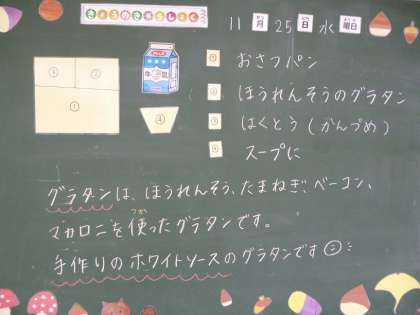 きょうのきゅうしょく
11月25日水曜日
① おさつパン
② ほうれんそうのグラタン
③ はくとう(かんづめ)
④ スープに
グラタンは、ほうれんそう、たまねぎ、ベーコン、
マカロニを使ったグラタンです。
手作りのホワイトソースのグラタンです